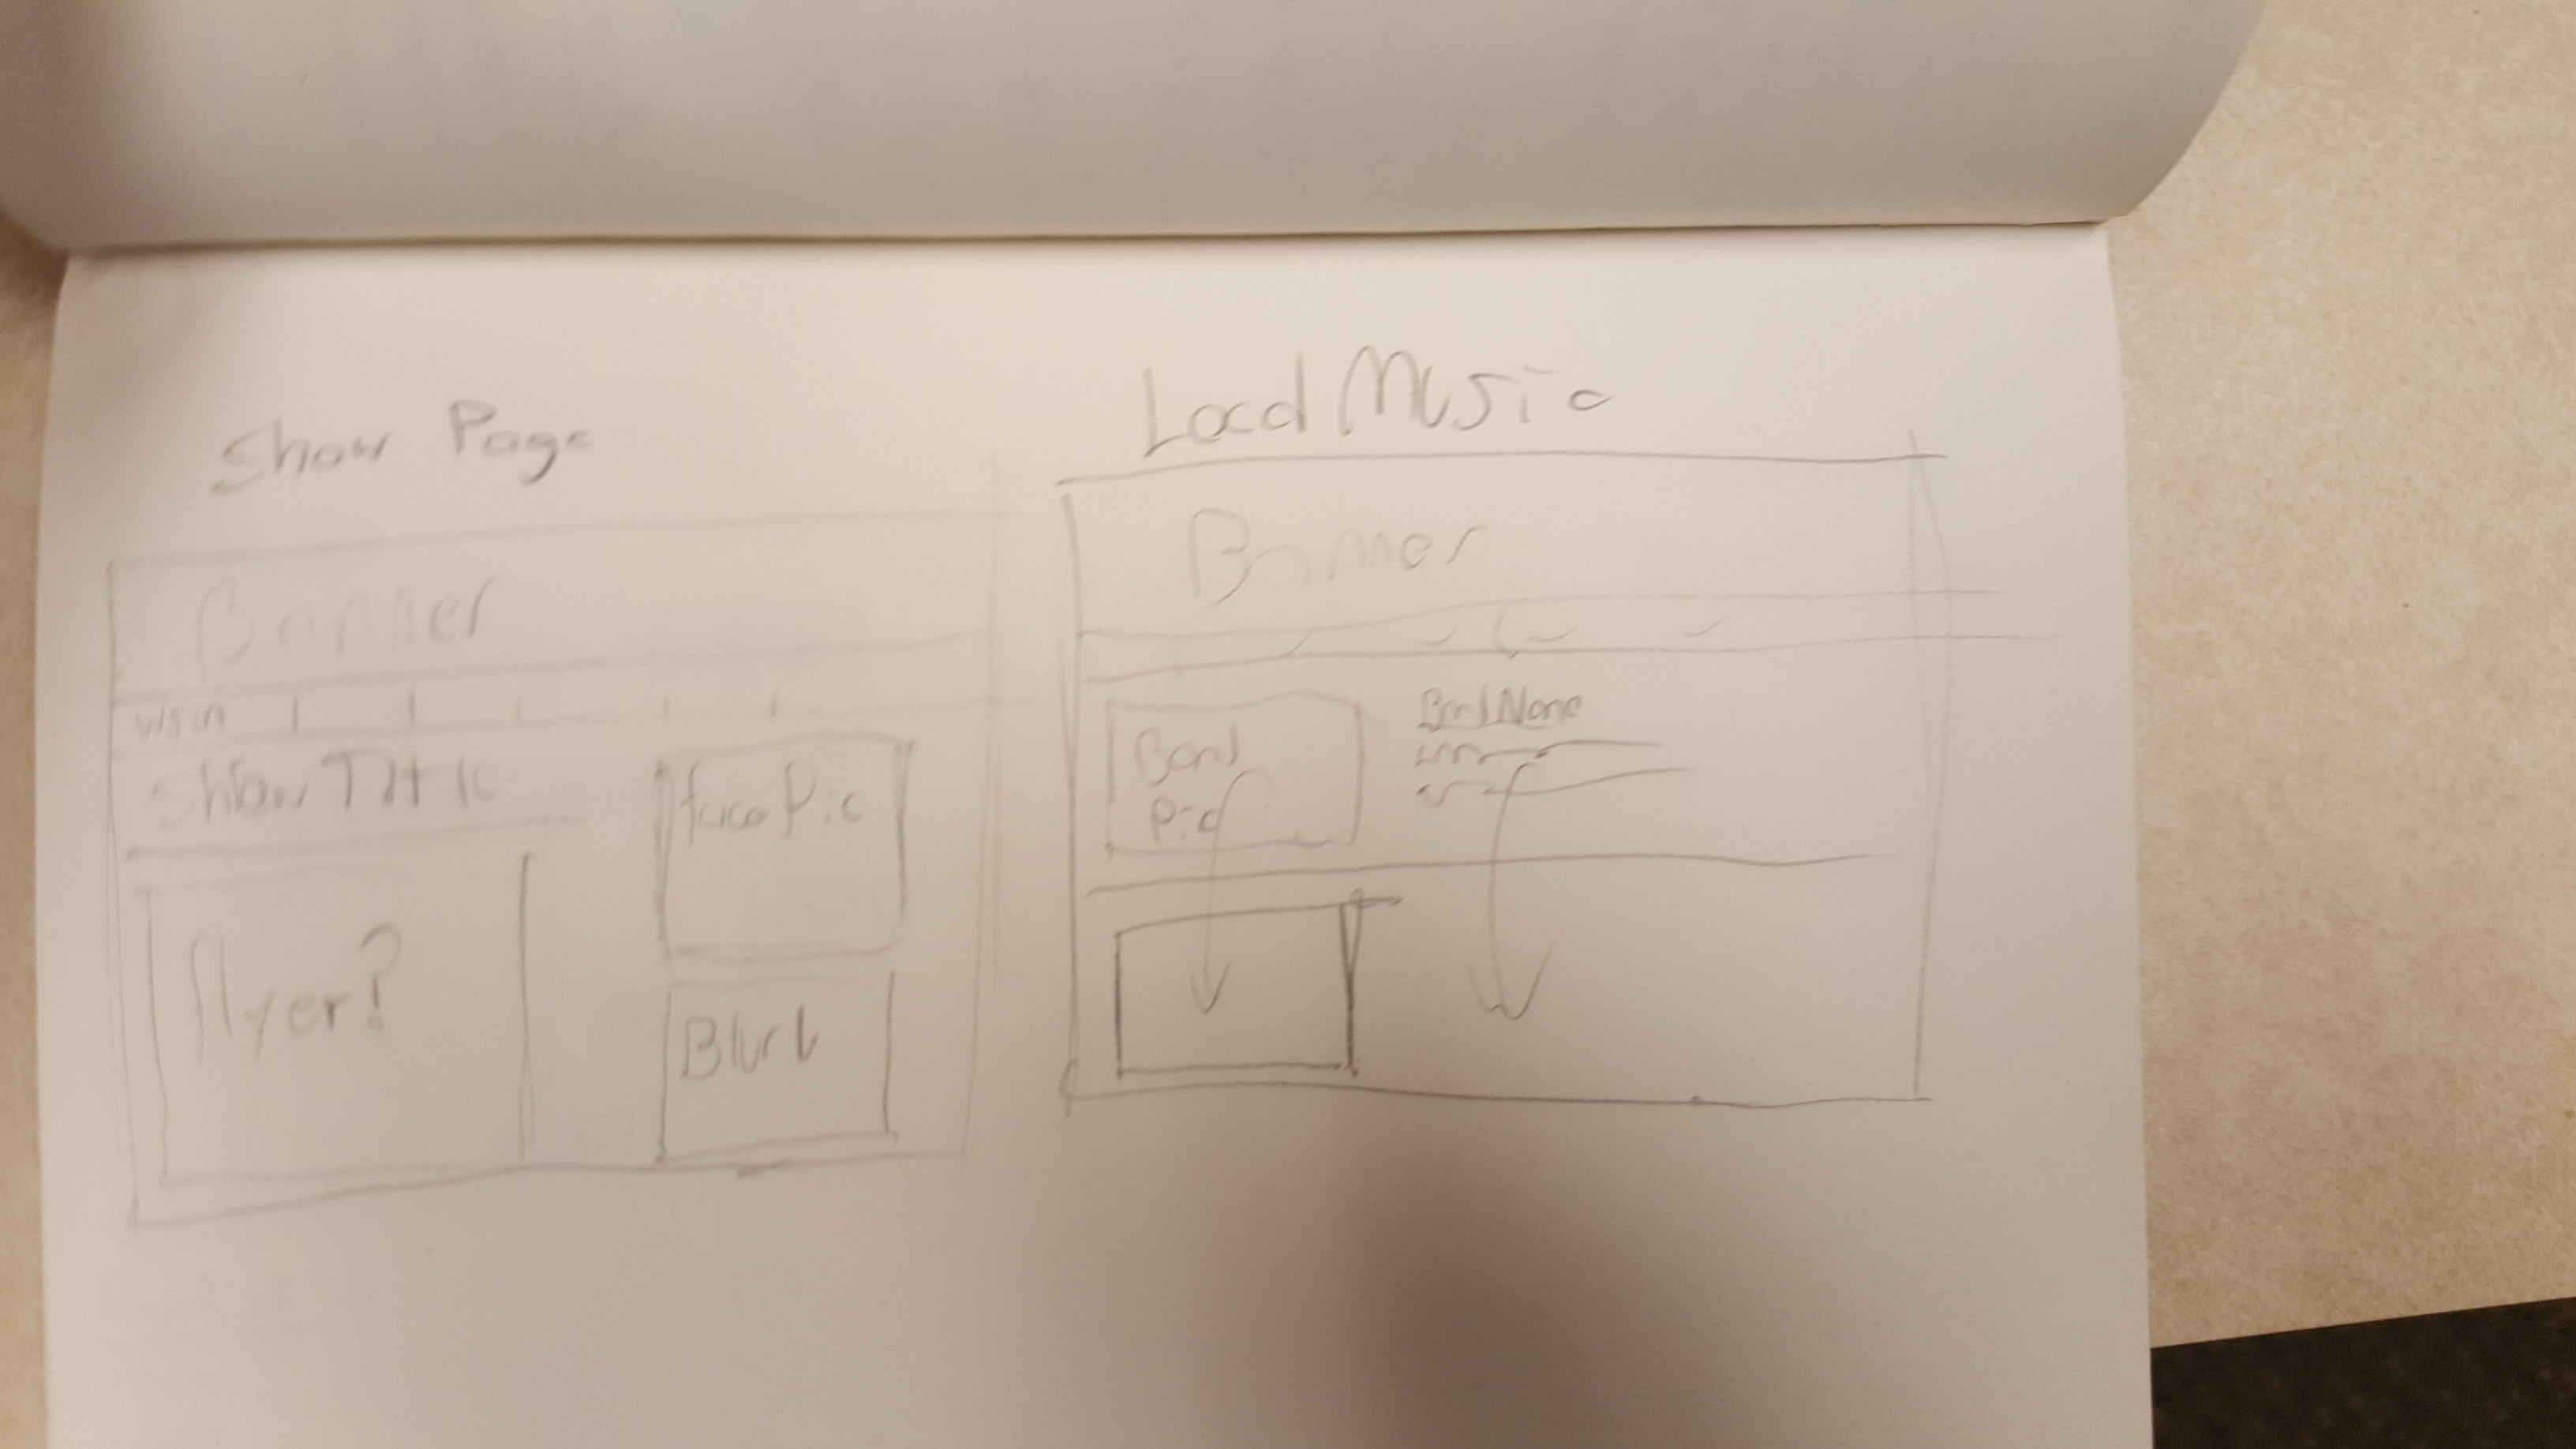 Show Page
Banner
Show Title
flyer?
face Pic
Blurb
Local Music
Banner
Band
Pic
Band Name